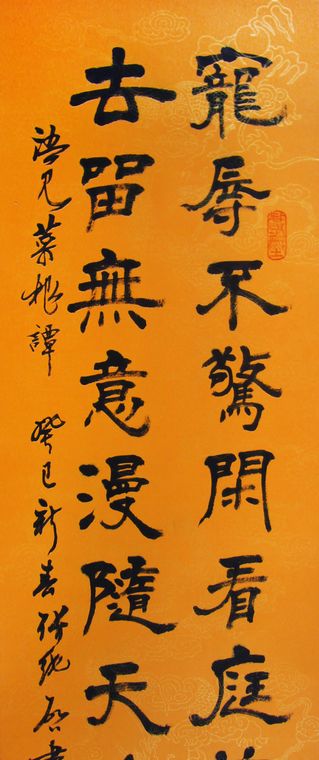 寵辱不驚閑看庭
去留無意漫隨天
語見菜根譚 癸巳新春